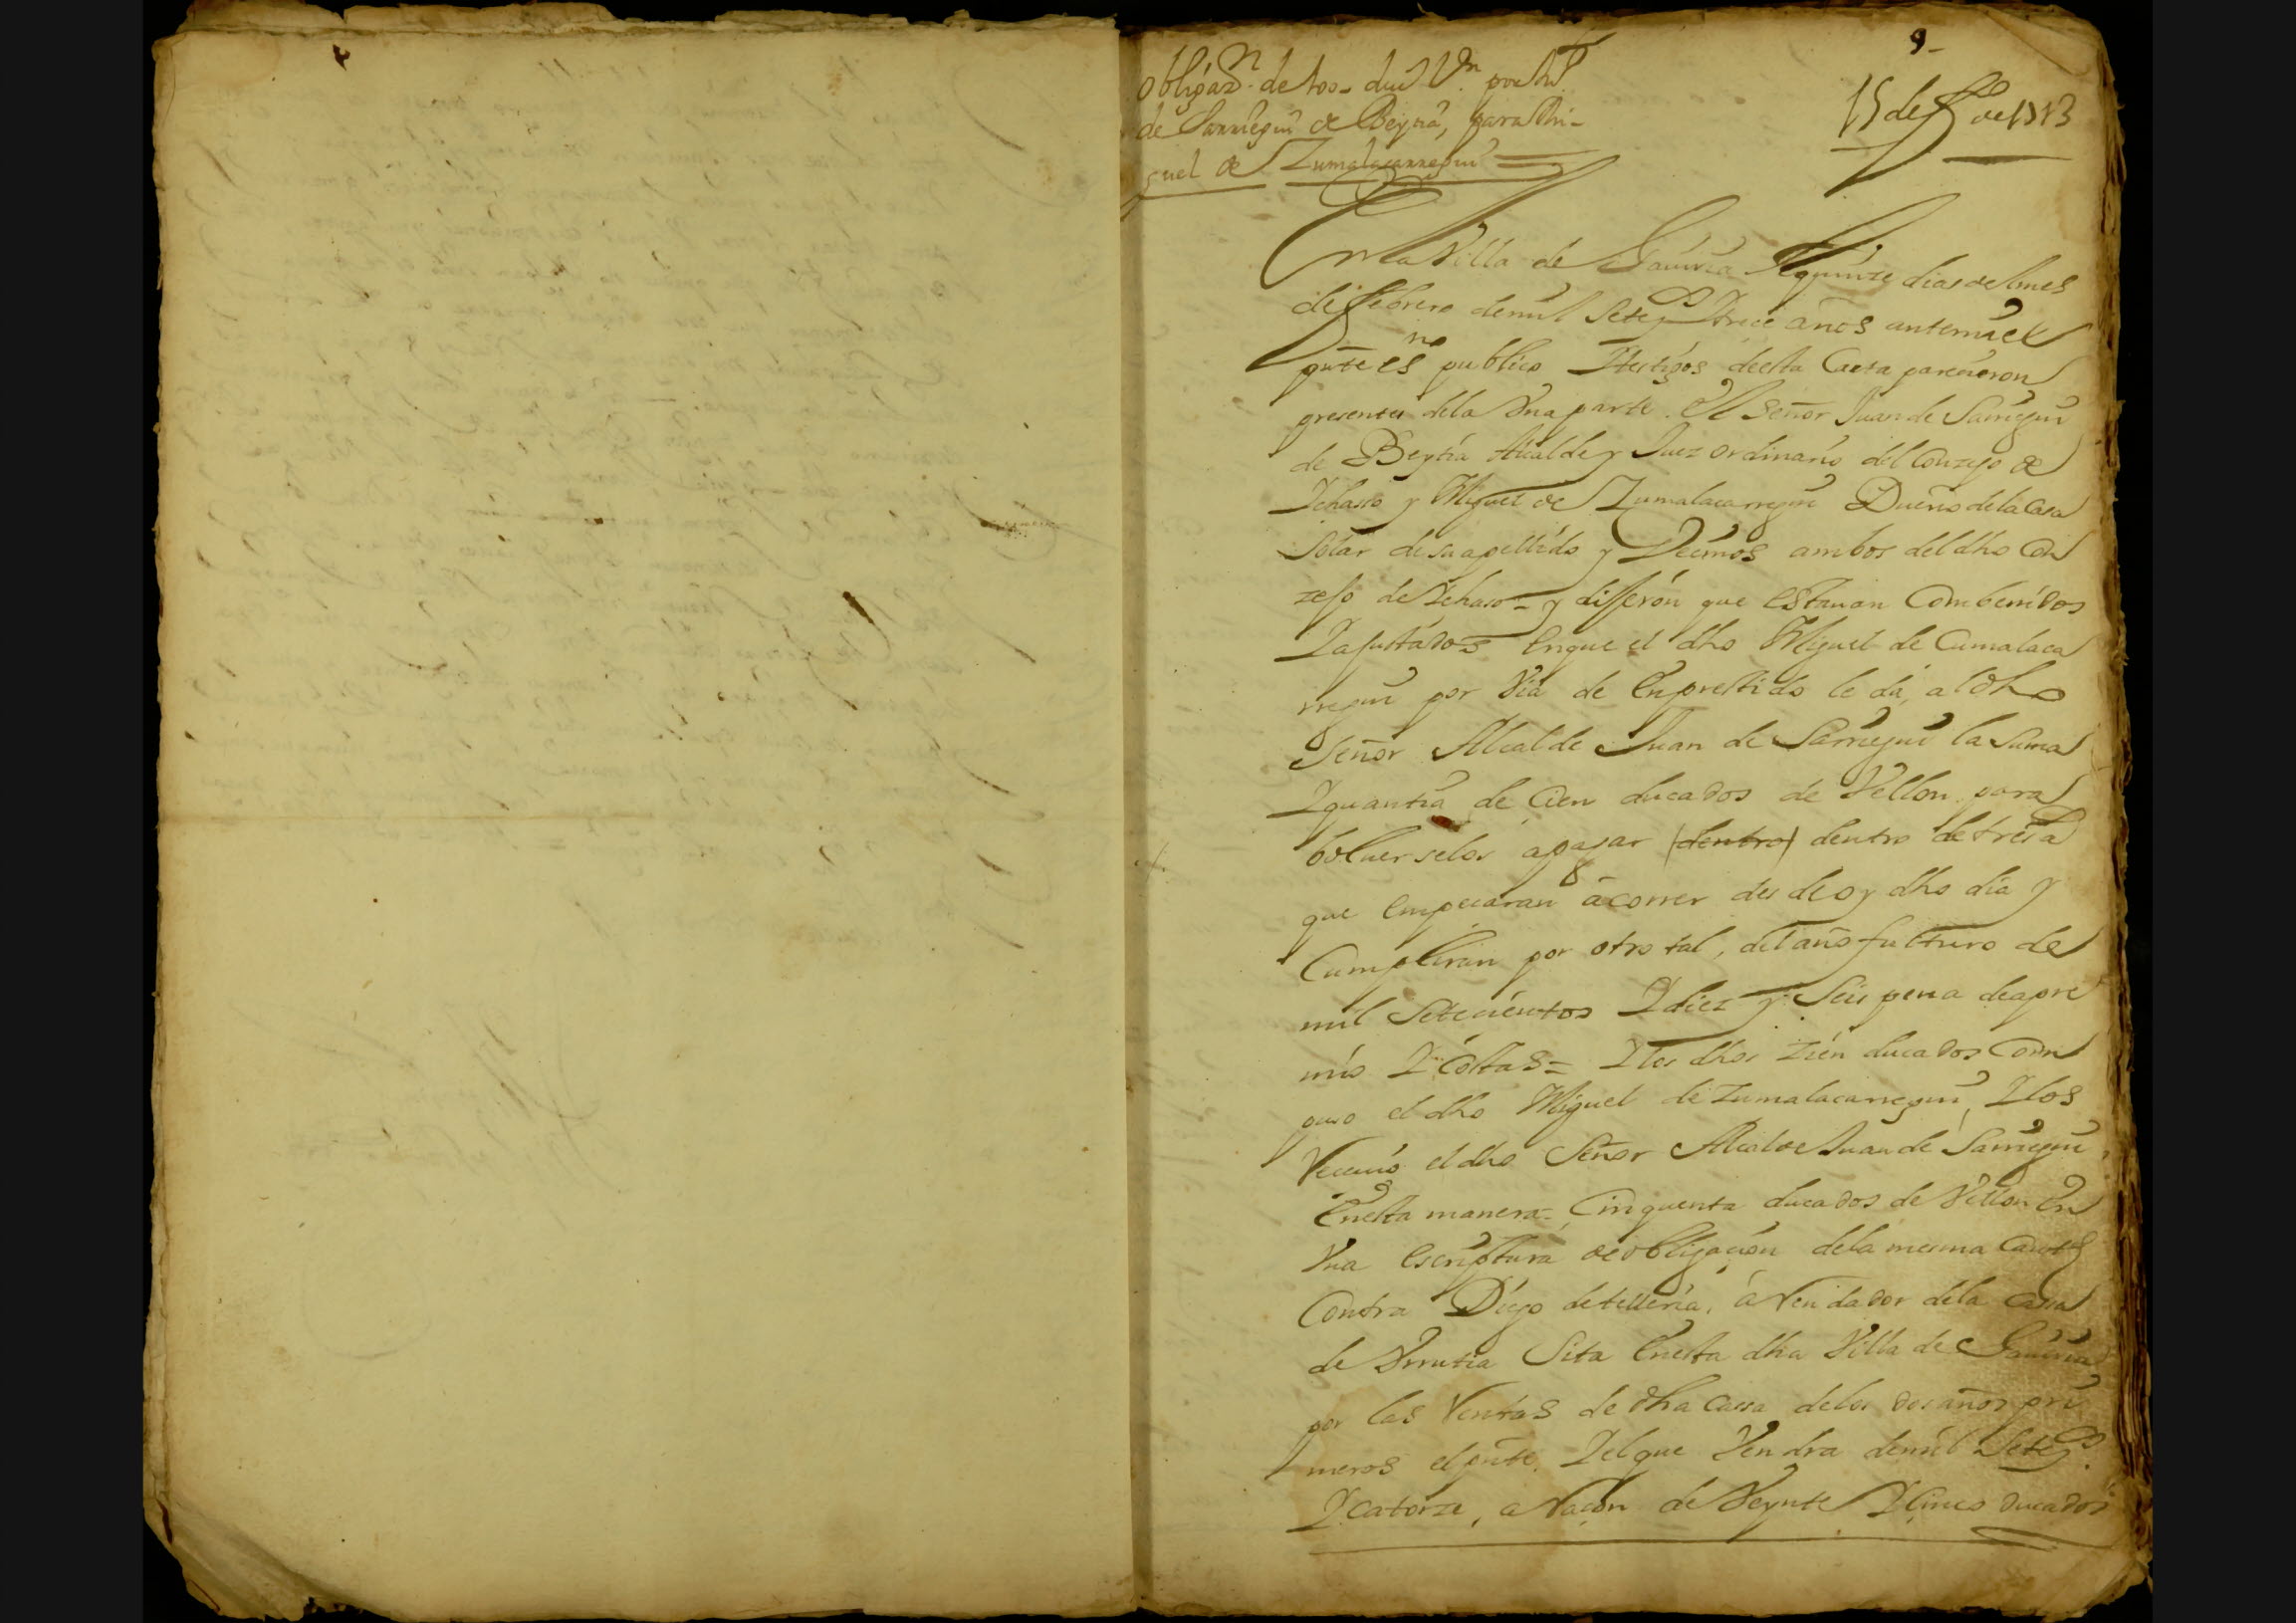 9-
obligaz.n de 100- duc.s V.n por Ju.o
de Sarriegui de Beytia, para Mi-
guel de Zumalacarregui =
15 de feb.o de 1713
En la Villa de Gauiria A quinze dias del mes
de febrero de mil Setez.s Y trece años ante mi el
pnte es.no publico Y testigos de esta Carta parecieron
presentes de la Una parte. el Señor Juan de Sarriegui
de Beytia Alcalde y Juez ordinario del Conzejo de
Ychaso y Miguel de Zumalacarregui Dueño de la Casa
Solar de su apellido y Vecinos ambos del dho Con
zejo de Ychaso = y dijeron que estauan Combenidos
Y ajustados en que el dho Miguel de Cumalaca
rregui por Via de Enprestido le da, al dho
Señor Alcalde Juan de Sarriegui la Suma
Y quantia de Cien ducados de Vellon para
boluerselos a pagar (dentro) dentro de tres a
que empezaran a correr desde oy dho dia y
Cumpliran por otro tal, del año fulturo de
mil Setecientos Y diez y Seis pena de apre
mio Y Costas = Y los dhos zien ducados Con
puso el dho Miguel de Zumalacarregui, Y los
Reciuio el dho Señor Alcalde Juan de Sarriegui,
En esta manera = Cinquenta ducados de Vellon En
Vna escriptura de obligacion de la mesma Cantd
Contra Diego de telleria, arrendador dela Cassa
de Vrrutia Sita En esta dha Villa de Gauiria
por las Rentas de dha Cassa de los dos años pri
meros el pnte. Y el que Vendra de mil Setez.s
Y catorze, a Raçon de Veynte Y Cinco ducados